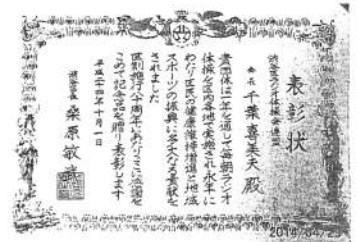 表彰状
渋谷区ラジオ体操会連盟
会長 千葉喜美夫 殿
貴団体は一年を通して毎朝ラジオ
体操を区内各地で実施され永年に
わたり区民の健康維持増進と地域
スポーツの振興に多大なる貢献を
されました
区制施行八十周年にあたりここに感謝を
こめて記念品を贈り表彰します
平成二十四年十月一日
渋谷区長 桑原敏武
2014/04/23